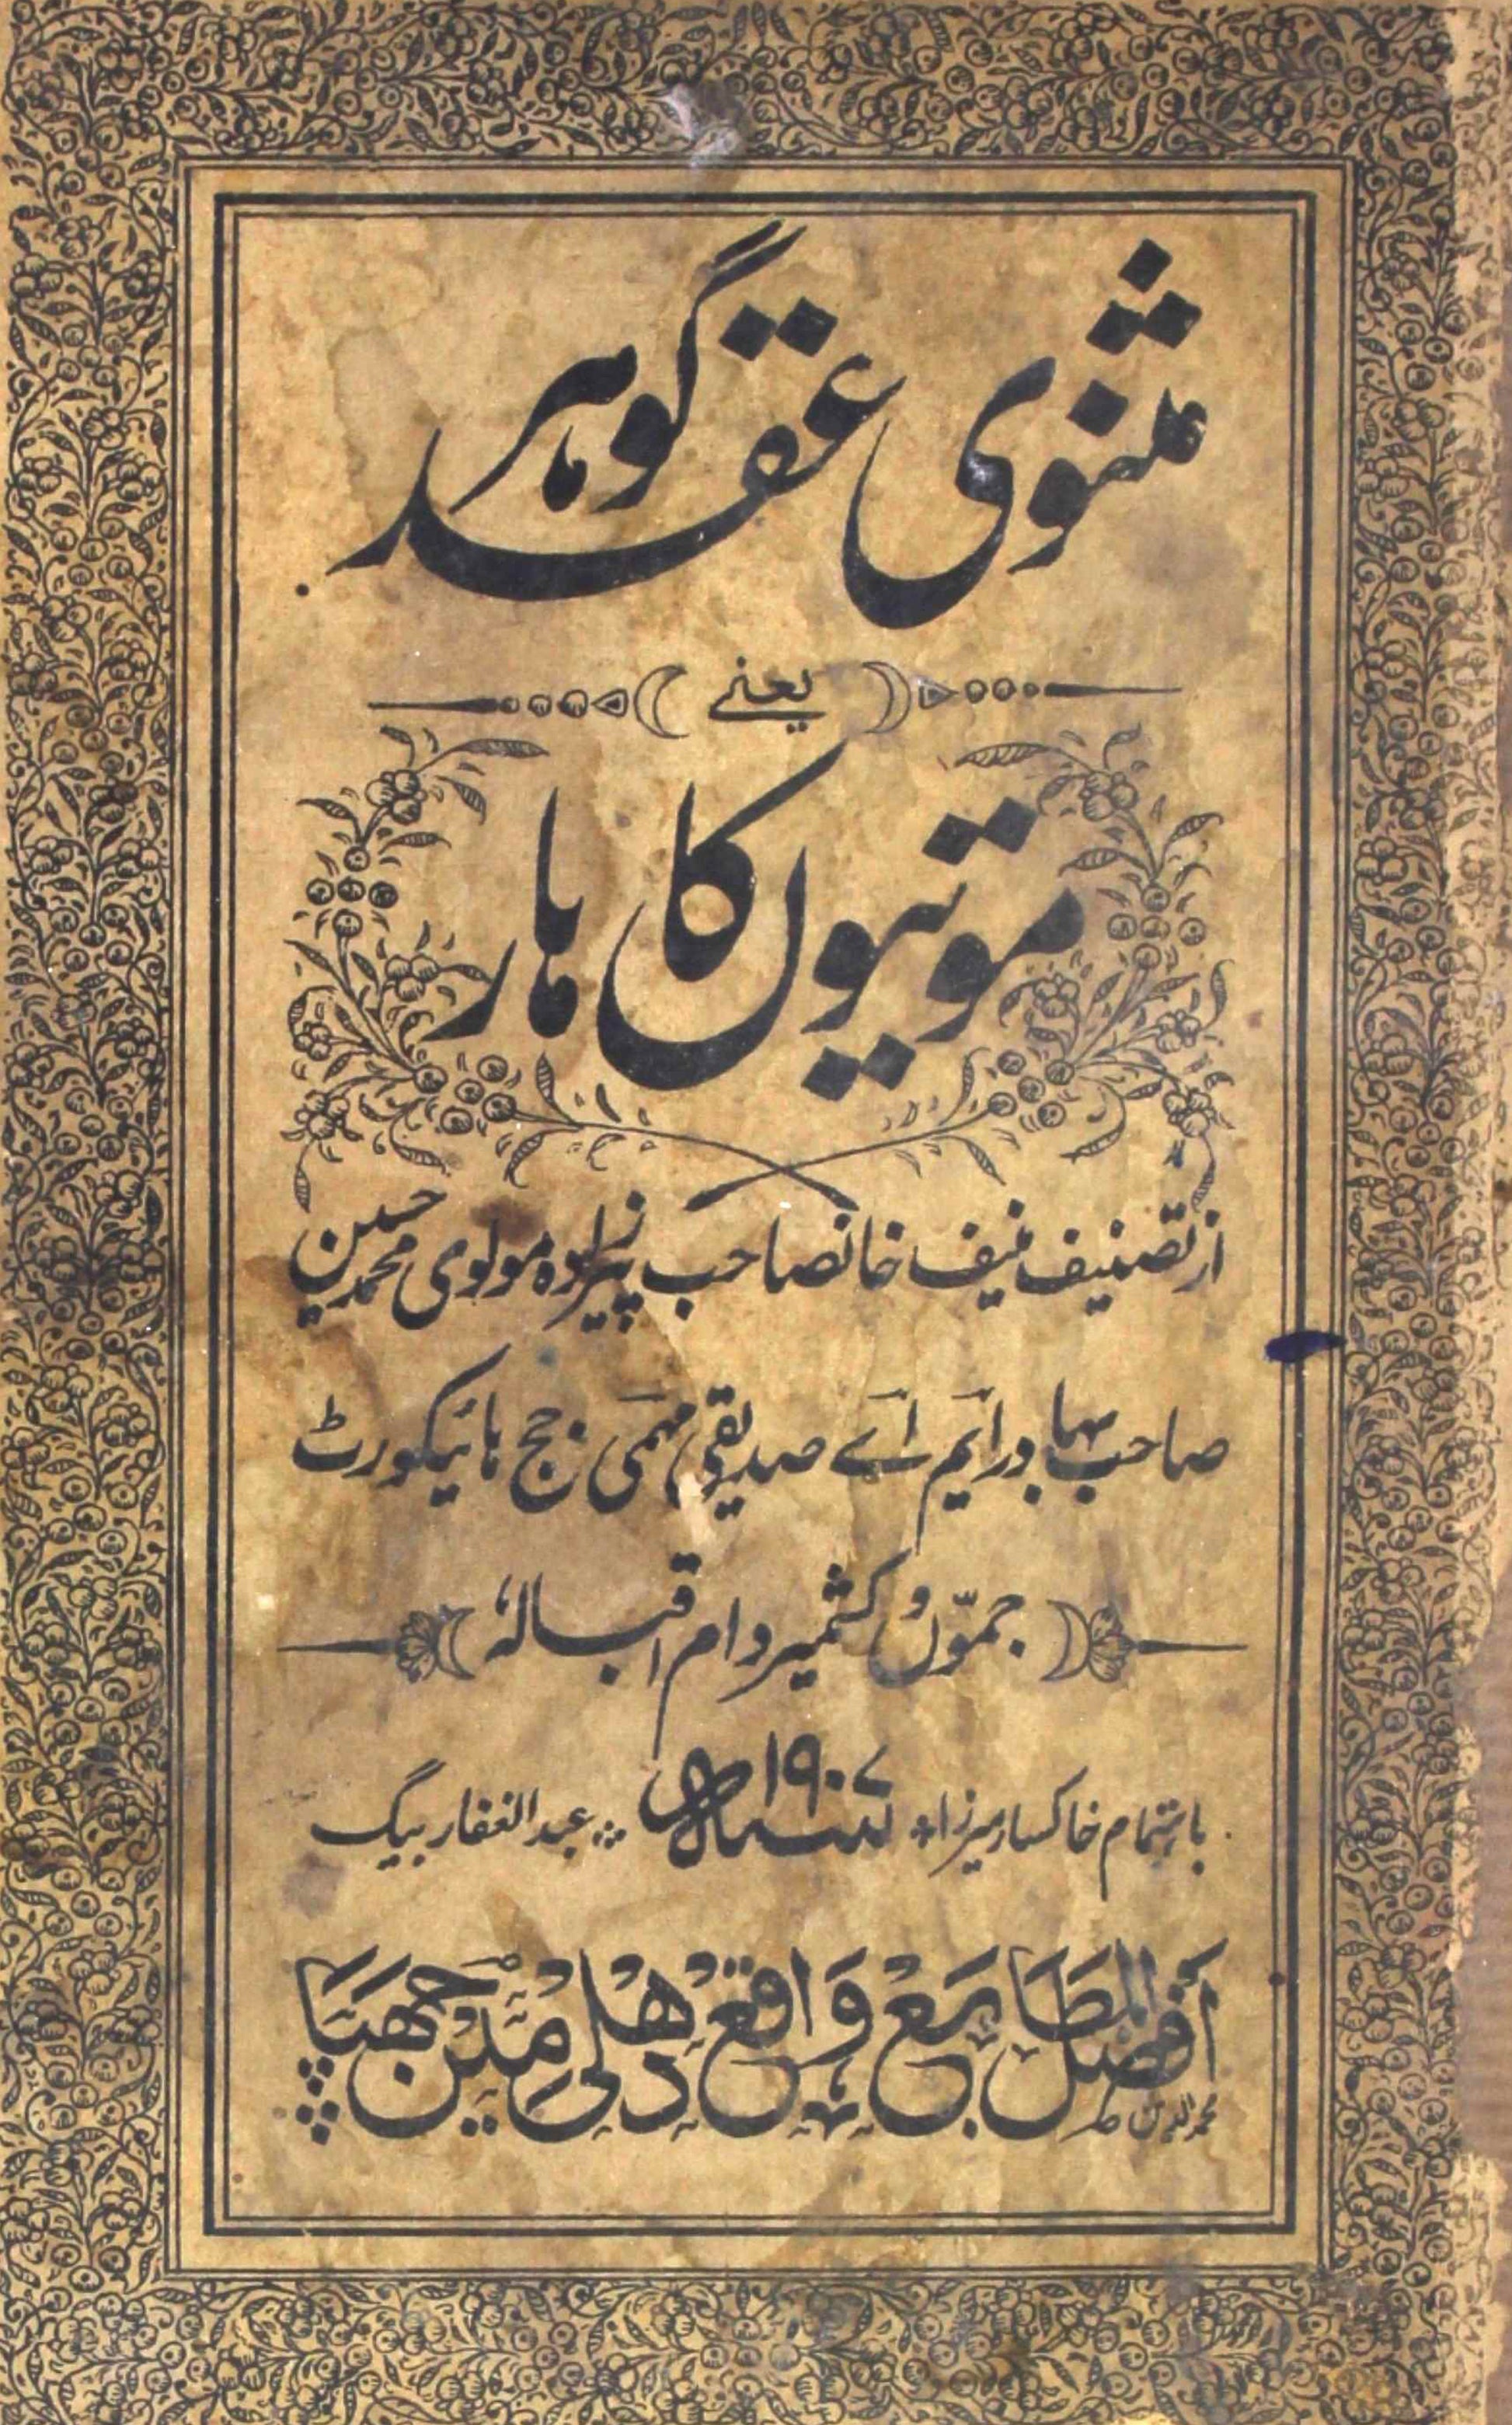 مثنوی عقد گوہر
یعنے
موتیوں کا ہار
از تصنیف منیف خانصاحب پیرزادہ مولوی محمد حسین
صاحب بہادر ایم اے صدیقی مہمی جج ہائیکورٹ
جموّں و کشمیر دام اقبالہٗ
باہتمام خاکسار میرزا سنہ ۱۹۰۷ء عبدالغفار بیگ
افضل المطابع واقع دهلی میں چھپا